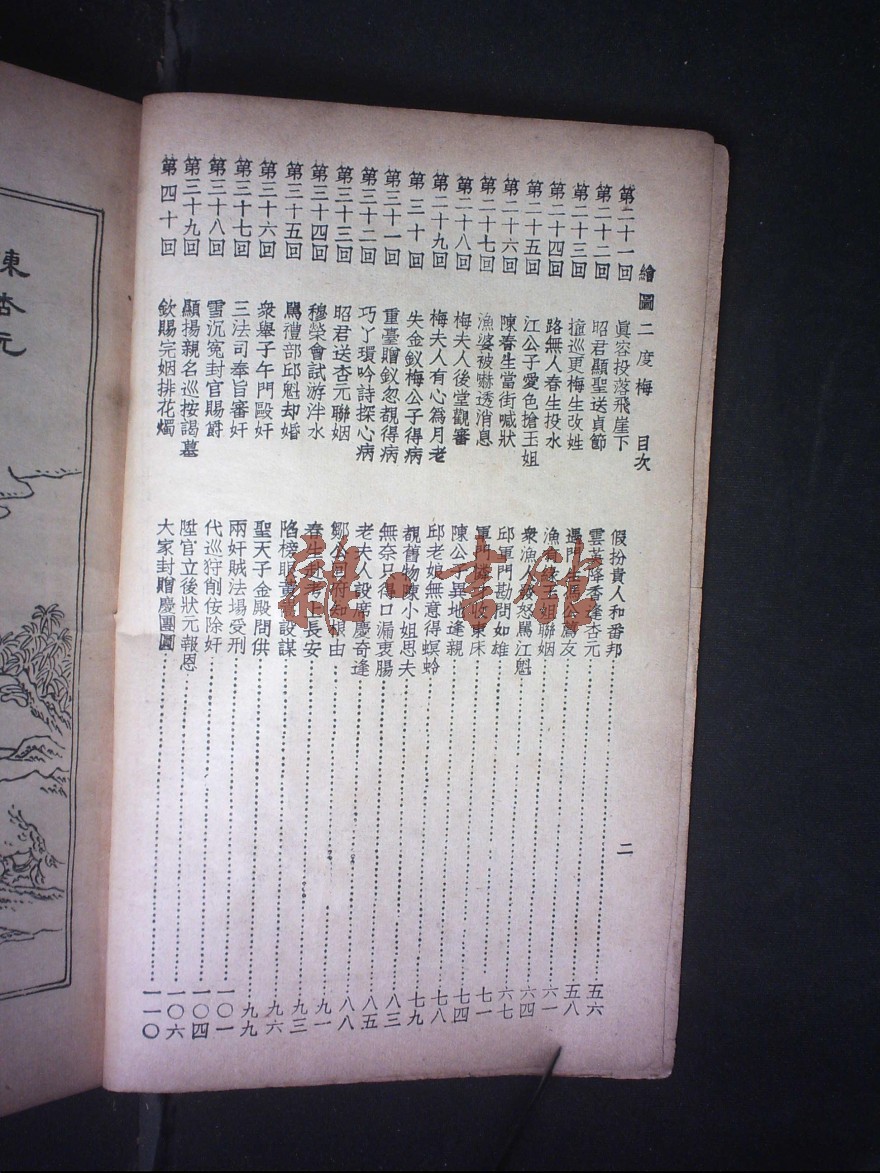 繪圖二度梅　目次　二
第二十一回　眞容投落飛崖下　假扮貴人和番邦　五六
第二十二回　昭君顯聖送貞節　雲英降香逢杏元　五八
第二十三回　撞巡更梅生改姓　遇門生馮公薦友　六一
第二十四回　路無人春生投水　漁有緣玉姐聯姻　六四
第二十五回　江公子愛色搶玉姐　衆漁人發怒罵江魁　六七
第二十六回　陳春生當街喊狀　邱軍門勘問如雄　七一
第二十七回　漁婆被嚇透消息　軍門憐才收東床　七四
第二十八回　梅夫人後堂觀審　陳公子異地逢親　七八
第二十九回　梅夫人有心爲月老　邱老娘無意得螟蛉　七九
第三十回　失金釵梅公子得病　覩舊物陳小姐思夫　八三
第三十一回　重臺贈釵忽覩得病　無奈只得口漏衷腸　八五
第三十二回　巧丫環吟詩探心病　老夫人設席慶奇逢　八八
第三十三回　昭君送杏元聯姻　鄒公回府知根由　九一
第三十四回　穆榮會試游泮水　春生赴考上長安　九三
第三十五回　罵禮部邱魁却婚　陷榜眼黃嵩設謀　九六
第三十六回　衆舉子午門毆奸　聖天子金殿問供　九九
第三十七回　三法司奉旨審奸　兩奸賊法場受刑　一〇一
第三十八回　雪沉冤封官賜爵　代巡狩削佞除奸　一〇四
第三十九回　顯揚親名巡按謁墓　陞官立後狀元報恩　一〇六
第四十回　欽賜完姻排花燭　大家封贈慶團圓　一一〇
陳杏元
雜·書館